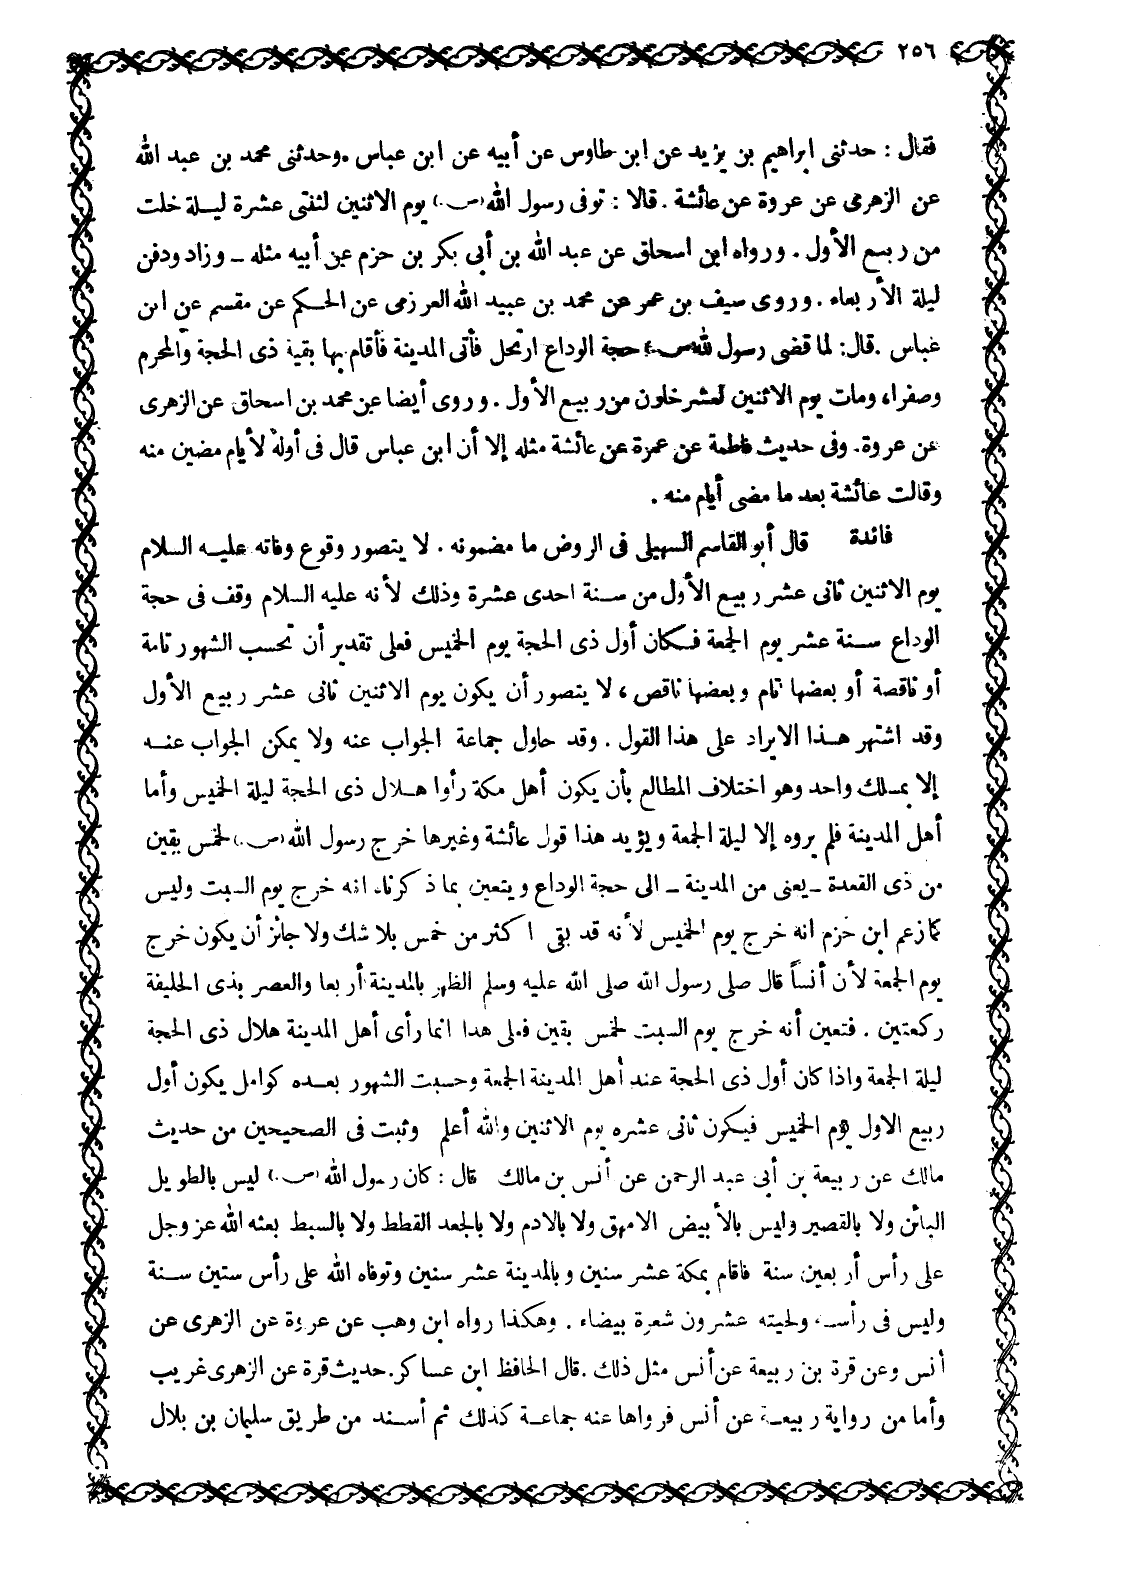 ٢٥٦
فقال : حدثنى ابراهيم بن يزيد عن ابن طاوس عن أبيه عن ابن عباس . وحدثنى محمد بن عبد الله
عن الزهرى عن عروة عن عائشة . قالا : توفى رسول الله (ص.) يوم الاثنين لثنتى عشرة ليلة خلت
من ربيع الأول . ورواه ابن اسحاق عن عبد الله بن أبى بكر بن حزم عن أبيه مثله ـ وزاد ودفن
ليلة الأربعاء . وروى سيف بن عمر عن محمد بن عبيد الله العرزمى عن الحكم عن مقسم عن ابن
عباس . قال : لما قضى رسول الله (ص.) حجة الوداع ارتحل فأتى المدينة فأقام بها بقية ذى الحجة والمحرم
وصفرا، ومات يوم الاثنين لعشر خلون من ربيع الأول . وروى أيضا عن محمد بن اسحاق عن الزهرى
عن عروة . وفى حديث فاطمة عن عمرة عن عائشة مثله إلا أن ابن عباس قال فى أوله لأيام مضين منه
وقالت عائشة بعد ما مضى أيام منه .
فائدة قال أبو القاسم السهيلى فى الروض ما مضمونه . لا يتصور وقوع وفاته عليه السلام
يوم الاثنين ثانى عشر ربيع الأول من سنة احدى عشرة وذلك لأنه عليه السلام وقف فى حجة
الوداع سنة عشر يوم الجمعة فكان أول ذى الحجة يوم الخميس فعلى تقدير أن تحسب الشهور تامة
أو ناقصة أو بعضها تام وبعضها ناقص ، لا يتصور أن يكون يوم الاثنين ثانى عشر ربيع الأول
وقد اشتهر هذا الايراد على هذا القول . وقد حاول جماعة الجواب عنه ولا يمكن الجواب عنه
إلا بمسلك واحد وهو اختلاف المطالع بأن يكون أهل مكة رأوا هلال ذى الحجة ليلة الخميس وأما
أهل المدينة فلم يروه إلا ليلة الجمعة ويؤيد هذا قول عائشة وغيرها خرج رسول الله (ص.) لخمس بقين
من ذى القعدة ـ يعنى من المدينة ـ الى حجة الوداع ويتعين بما ذكرناه انه خرج يوم السبت وليس
كما زعم ابن حزم انه خرج يوم الخميس لأنه قد بقى اكثر من خمس بلا شك ولا جائز أن يكون خرج
يوم الجمعة لأن أنساً قال صلى رسول الله صلى الله عليه وسلم الظهر بالمدينة أربعا والعصر بذى الحليفة
ركعتين . فتعين أنه خرج يوم السبت لخمس بقين فعلى هذا انما رأى أهل المدينة هلال ذى الحجة
ليلة الجمعة واذا كان أول ذى الحجة عند أهل المدينة الجمعة وحسبت الشهور بعده كوامل يكون أول
ربيع الاول يوم الخميس فيكون ثانى عشره يوم الاثنين والله أعلم وثبت فى الصحيحين من حديث
مالك عن ربيعة بن أبى عبد الرحمن عن أنس بن مالك قال : كان رسول الله (ص.) ليس بالطويل
البائن ولا بالقصير وليس بالأبيض الامهق ولا بالادم ولا بالجعد القطط ولا بالسبط بعثه الله عز وجل
على رأس أربعين سنة فاقام بمكة عشر سنين وبالمدينة عشر سنين وتوفاه الله على رأس ستين سنة
وليس فى رأسه ولحيته عشرون شعرة بيضاء . وهكذا رواه ابن وهب عن عروة عن الزهرى عن
أنس وعن قرة بن ربيعة عن أنس مثل ذلك . قال الحافظ ابن عساكر . حديث قرة عن الزهرى غريب
وأما من رواية ربيعة عن أنس فرواها عنه جماعة كذلك ثم أسند من طريق سليمان بن بلال